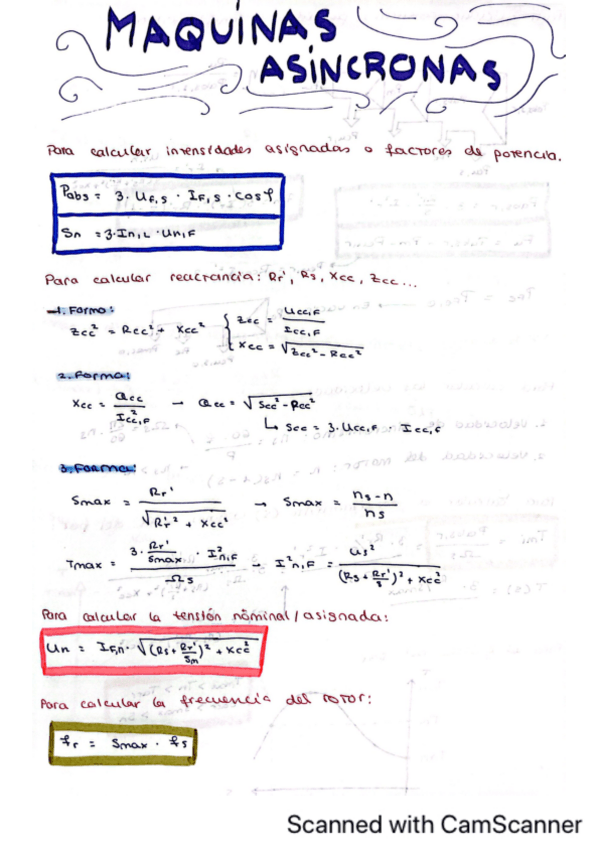 MAQUINAS
ASÍNCRONAS
Para calcular intensidades asignadas o factores de potencia.
Pabs = 3 · UF,S · IF,S · cosφ
Sn = 3·In,L · Un,F
Para calcular reactancia: Rr', Rs, Xcc, Zcc...
1. Forma:
Zcc² = Rcc² + Xcc² { Zcc = Ucc,F / Icc,F
Xcc = √(Zcc² - Rcc²)
2. Forma:
Xcc = Qcc / I²cc,F → Qcc = √(Scc² - Pcc²)
↳ Scc = 3·Ucc,F · Icc,F
3. Forma:
Smax = Rr' / √(Rr'² + Xcc²) → Smax = ns-n / ns
Tmax = 3 · Rr'/Smax · I²n,F / Ωs → I²n,F = Us² / (Rs + Rr'/s)² + Xcc²
Para calcular la tensión nominal/asignada:
Un = IF,n · √((Rs + Rr'/Sm)² + Xcc²)
Para calcular la frecuencia del rotor:
fr = Smax · fs
Scanned with CamScanner